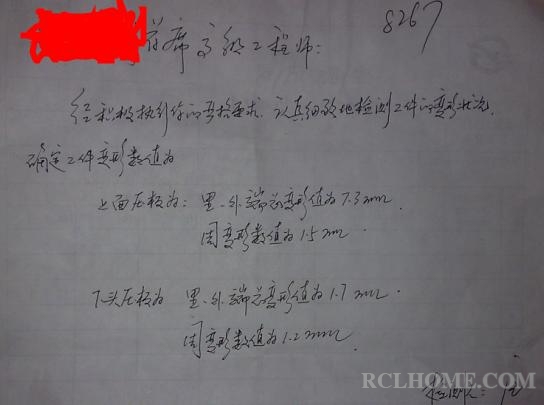 8267
首席高级工程师:
经积极执行你的严格要求,认真细致地检测工件的变形状况,
确定工件变形数值为
上面压板为: 里、外端总变形值为7.3mm.
周变形数值为1.5mm
下头压板为 里、外端总变形值为1.7mm.
周变形数值为1.2mm.
检测人:
RCLHOME.COM